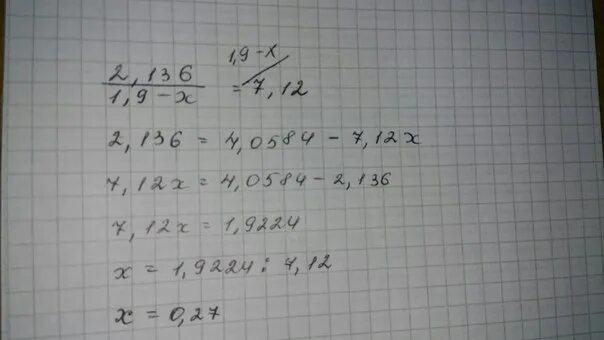 2,136 / 1,9 - x = 7,12 / 1,9 - x
2,136 = 4,0584 - 7,12x
7,12x = 4,0584 - 2,136
7,12x = 1,9224
x = 1,9224 : 7,12
x = 0,27